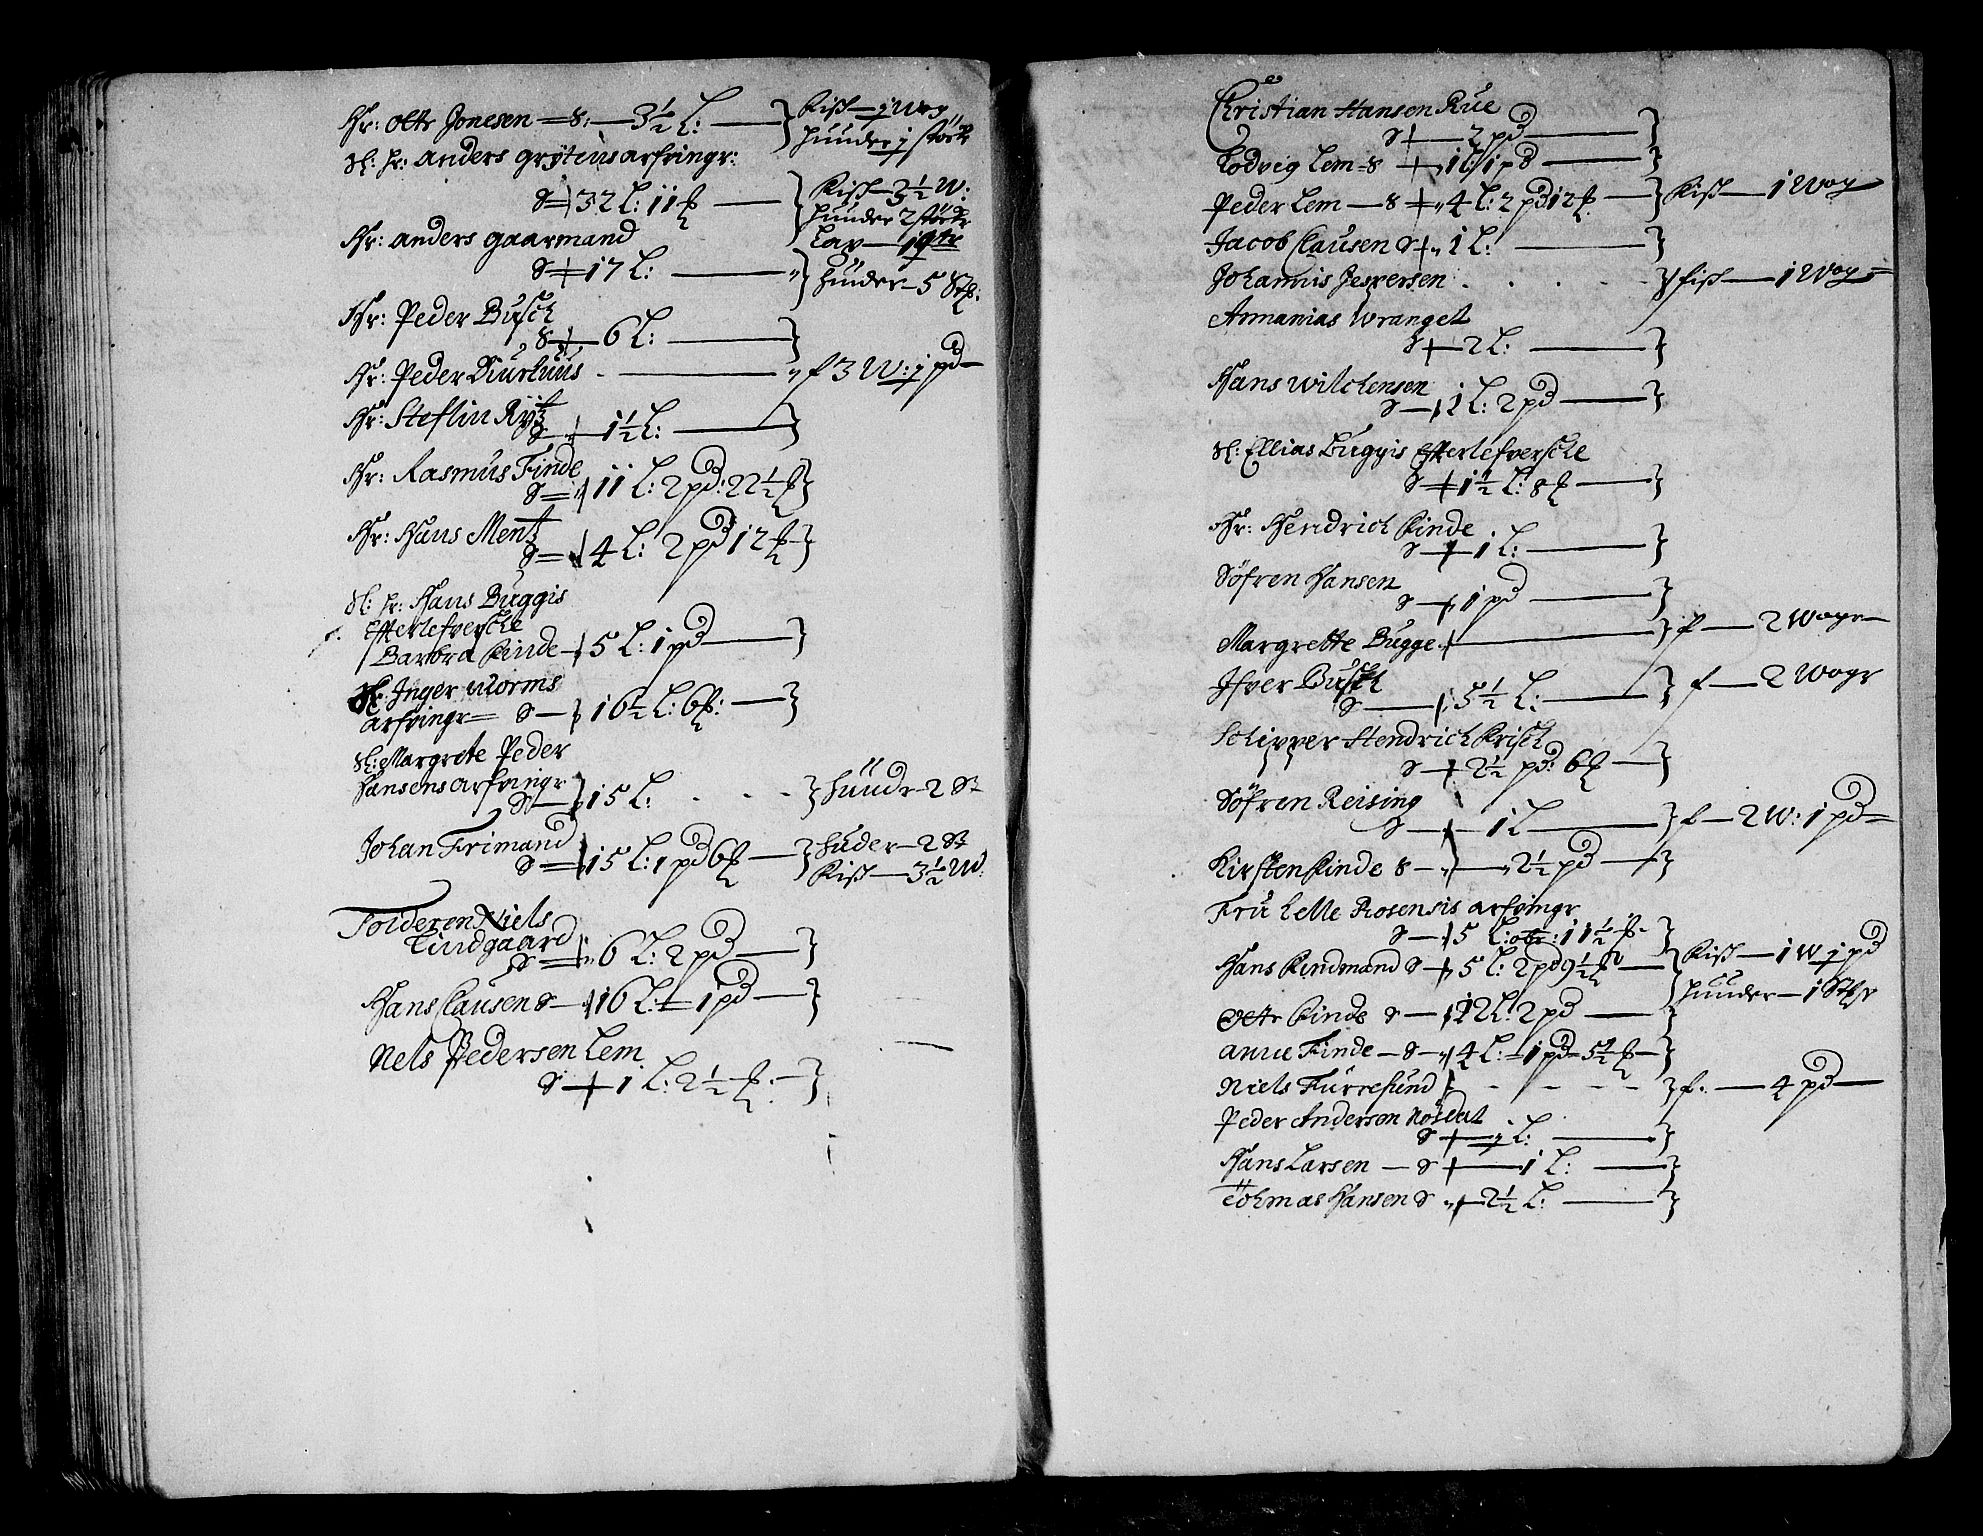 Hr: Olle Jonesen — 8: — 3½ L: — } Fisk — j Wog
huuder j støcke
Sl: Hr: Anders Grytens arfvingr:
S — 32 L: 11 ℔ — } Fisk — 3½ W:
huuder 2 støcke
Lax — 1 qtr
Hr: Anders Gaarmand
S — 17 L: — } huuder — 5 Stk:
Hr: Peder Busch
8 — 6 L: — }
Hr: Peder Kurluus — f 3 W: j pd —
Hr: Steflin Rytz
S — 1½ L: — }
Hr: Rasmus Finde
S — 11 L: 2 pd: 22½ ℔ }
Hr: Hans Mentz
S — 4 L: 2 pd 12 ℔ — }
Sl: Hr: Hans Buggis
Efterlefversche
Barbra Kinde — 5 L: 1 pd — }
Sl: Inger Worms
arfvingr — S — 16½ L: 6 ℔: — }
Sl: Margrete Peder
Hansens arfvingr
S — 15 L: - - - } huudr — 2 St
Johan Frimand
S — 15 L: 1 pd 6 ℔ — } huder — 2 St
Fisk — 3½ W:
Tolderen Niels
Lindgaard
S — 6 L: 2 pd — }
Hans Clausen S — 16 L: — 1 pd — }
Nels Pedersen Lem
S — 1 L: 2½ ℔: — }
Christian Hansen Rue
S — 2 pd — }
Lodvig Lem — 8 — 1 L: 1 pd — }
Peder Lem — 8 — 4 L: 2 pd 12 ℔ — } Fisk — 1 Wog
Jacob Clausen S — 1 L: — }
Johannis Jespersen . . . . } fisk — 1 Wog
Annanias Wrangel
S — 2 L: — }
Hans Wilchensen
S — 1 L: 2 pd — }
Sl: Ellias Buggis Efterlefversche
S — 1½ L: 8 ℔ — }
Hr: Hendrich Kinde
S — 1 L: — }
Söfren Hansen
S — 1 pd — }
Margrette Bugge — } f — 2 Wogr —
Ifver Busch
S — 5½ L: — } f — 2 Wogr
Schipper Hendrich Frisch
S — 2½ pd: 6 ℔ — }
Söfren Reising
S — 1 L — } f — 2 W: 1 pd —
Kirsten Kinde 8 — 2½ pd — }
Fru Lelle Rosensis arfvingr
S — 5 L: 11½ ℔ - }
Hans Kindmand S — 5 L: 2 pd 9½ ℔ — } Fisk — 1 W j pd
huuder — 1 Stk
Olle Kinde S — 12 L: 2 pd — }
Anne Finde — S — 4 L: — 1 pd — 5½ ℔ — }
Niels Furresund - - - - } f. — 4 pd —
Peder Andersen Nösdal
S — j L: — }
Hans Larsen — S — 1 L: — }
Tohmas Hansen S — 2½ L: — }